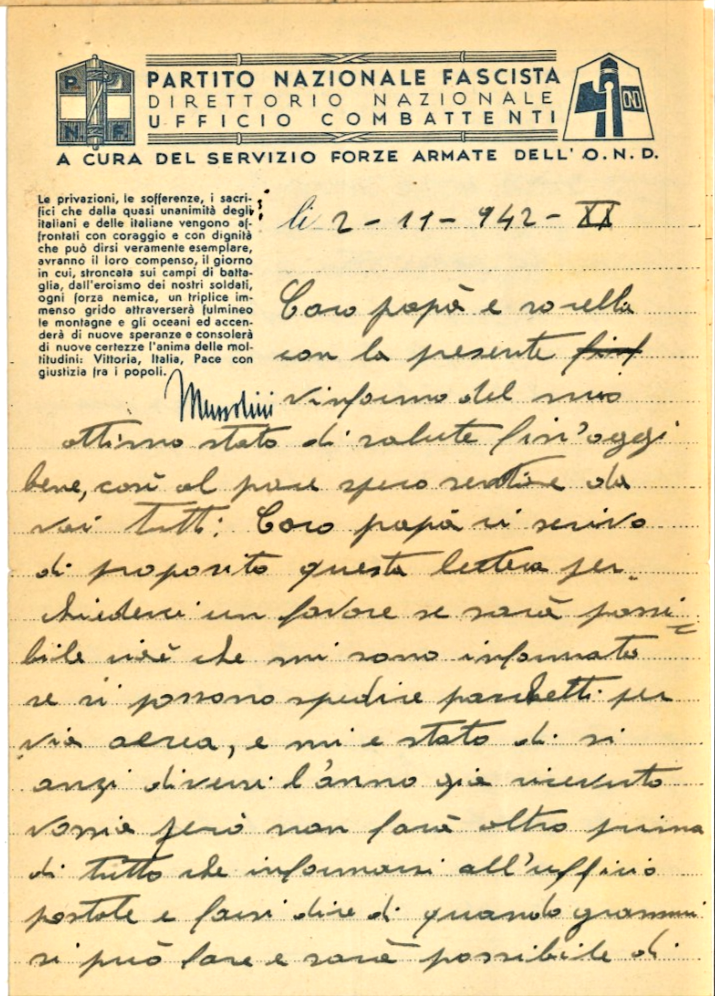 P.
N.F.
PARTITO NAZIONALE FASCISTA
DIRETTORIO NAZIONALE
UFFICIO COMBATTENTI
OND
A CURA DEL SERVIZIO FORZE ARMATE DELL'O.N.D.
Le privazioni, le sofferenze, i sacri-
fici che dalla quasi unanimità degli
italiani e delle italiane vengono af-
frontati con coraggio e con dignità
che può dirsi veramente esemplare,
avranno il loro compenso, il giorno
in cui, stroncata sui campi di batta-
glia, dall'eroismo dei nostri soldati,
ogni forza nemica, un triplice im-
menso grido attraverserà fulmineo
le montagne e gli oceani ed accen-
derà di nuove speranze e consolerà
di nuove certezze l'anima delle mol-
titudini: Vittoria, Italia, Pace con
giustizia fra i popoli.
Mussolini
li 2-11-942-XX
Caro papà e sorella
con la presente
v'informo del mio
ottimo stato di salute fin'oggi
bene, così al pare spero sentire da
voi tutti: Caro papà vi scrivo
di proposito questa lettera per
chiedervi un favore se sarà possi=
bile cioè che mi sono informato
se si possono spedire pacchetti per
via aerea, e mi e stato di si
anzi diversi l'anno già ricevuto
vossia però non farà altro prima
di tutto che informarsi all'ufficio
postale e farsi dire di quando grammi
si può fare e sarà possibile di